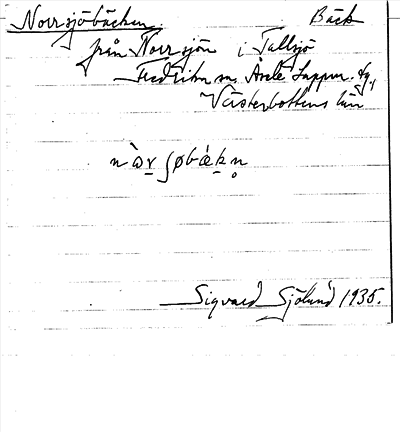 Norrsjöbäcken. Bäck
från Norrsjön i Tallsjö
Fredrika sn. Åsele Lappm.
Västerbottens län
Sigvard Sjölund 1935.